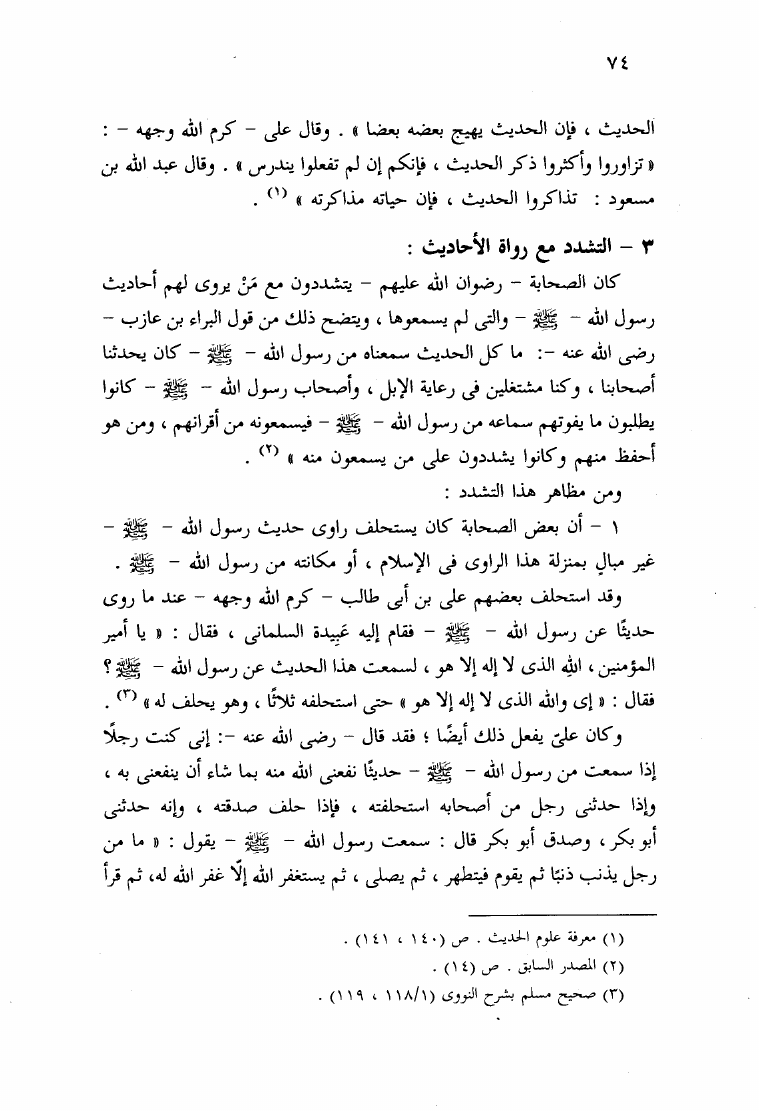 ٧٤
الحديث ، فإن الحديث يهيج بعضه بعضا » . وقال على – كرم الله وجهه – :
« تزاوروا وأكثروا ذكر الحديث ، فإنكم إن لم تفعلوا يندرس » . وقال عبد الله بن
مسعود : تذاكروا الحديث ، فإن حياته مذاكرته » (١) .
٣ – التشدد مع رواة الأحاديث :
كان الصحابة – رضوان الله عليهم – يتشددون مع مَنْ يروى لهم أحاديث
رسول الله – ﷺ – والتى لم يسمعوها ، ويتضح ذلك من قول البراء بن عازب –
رضى الله عنه –: ما كل الحديث سمعناه من رسول الله – ﷺ – كان يحدثنا
أصحابنا ، وكنا مشتغلين فى رعاية الإبل ، وأصحاب رسول الله – ﷺ – كانوا
يطلبون ما يفوتهم سماعه من رسول الله – ﷺ – فيسمعونه من أقرانهم ، ومن هو
أحفظ منهم وكانوا يشددون على من يسمعون منه » (٢) .
ومن مظاهر هذا التشدد :
١ – أن بعض الصحابة كان يستحلف راوى حديث رسول الله – ﷺ –
غير مبالٍ بمنزلة هذا الراوى فى الإسلام ، أو مكانته من رسول الله – ﷺ .
وقد استحلف بعضهم على بن أبى طالب – كرم الله وجهه – عند ما روى
حديثًا عن رسول الله – ﷺ – فقام إليه عَبِيدة السلمانى ، فقال : « يا أمير
المؤمنين ، اللهِ الذى لا إله إلا هو ، لسمعت هذا الحديث عن رسول الله – ﷺ ؟
فقال : « إى والله الذى لا إله إلا هو » حتى استحلفه ثلاثًا ، وهو يحلف له » (٣) .
وكان علىّ يفعل ذلك أيضًا ؛ فقد قال – رضى الله عنه –: إنى كنت رجلًا
إذا سمعت من رسول الله – ﷺ – حديثًا نفعنى الله منه بما شاء أن ينفعنى به ،
وإذا حدثنى رجل من أصحابه استحلفته ، فإذا حلف صدقته ، وإنه حدثنى
أبو بكر ، وصدق أبو بكر قال : سمعت رسول الله – ﷺ – يقول : « ما من
رجل يذنب ذنبًا ثم يقوم فيتطهر ، ثم يصلى ، ثم يستغفر الله إلّا غفر الله له، ثم قرأ
(١) معرفة علوم الحديث . ص (١٤٠ ، ١٤١) .
(٢) المصدر السابق . ص (١٤) .
(٣) صحيح مسلم بشرح النووى (١١٨/١ ، ١١٩) .